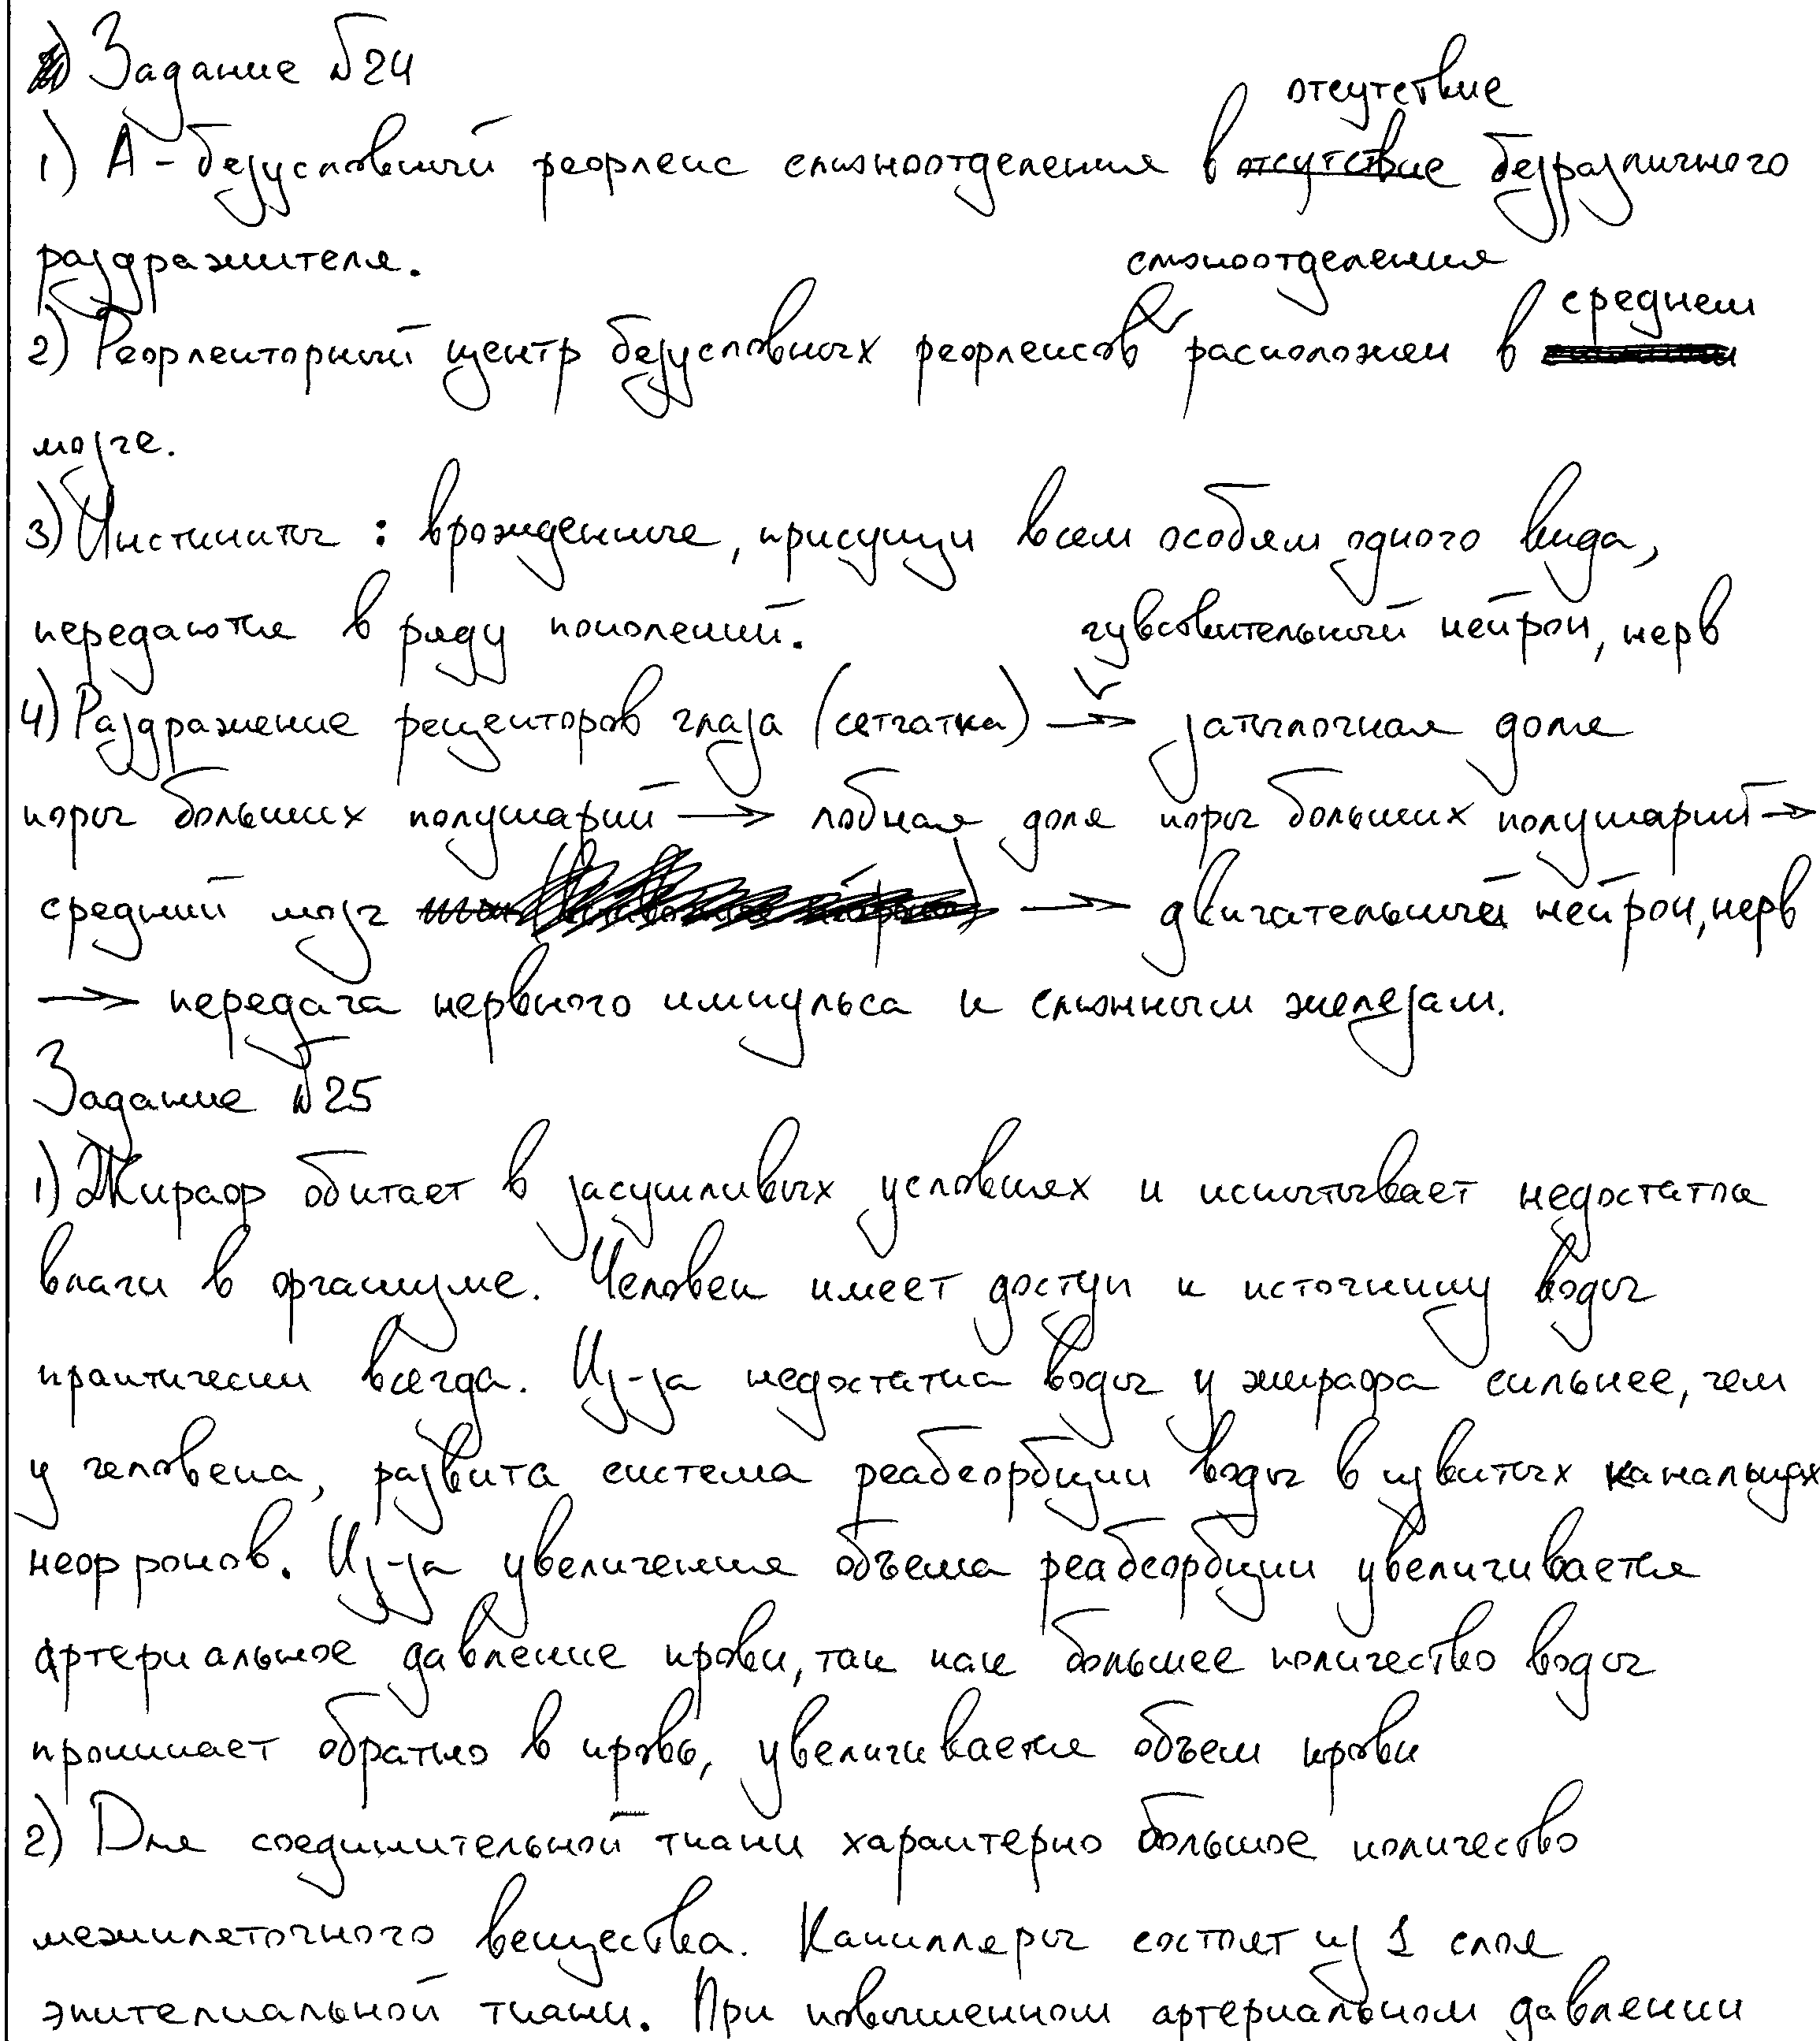 Задание №24
1) А - безусловный рефлекс слюноотделения в отсутствие безразличного
раздражителя.
2) Рефлекторный центр безусловных рефлексов слюноотделения расположен в среднем
мозге.
3) Инстинкты : врожденные, присущи всем особям одного вида,
передаются в ряду поколений.
4) Раздражение рецепторов глаза (сетчатка) → чувствительный нейрон, нерв → затылочная доля
коры больших полушарий → лобная доля коры больших полушарий →
средний мозг → двигательный нейрон, нерв
→ передача нервного импульса к слюнным железам.
Задание №25
1) Жираф обитает в засушливых условиях и испытывает недостатка
влаги в организме. Человек имеет доступ к источнику воды
практически всегда. Из-за недостатка воды у жирафа сильнее, чем
у человека, развита система реабсорбции воды в извитых канальцах
нефронов. Из-за увеличения объема реабсорбции увеличивается
артериальное давление крови, так как большее количество воды
проникает обратно в кровь, увеличивается объем крови
2) Для соединительной ткани характерно большое количество
межклеточного вещества. Капилляры состоят из 1 слоя
эпителиальной ткани. При повышенном артериальном давлении